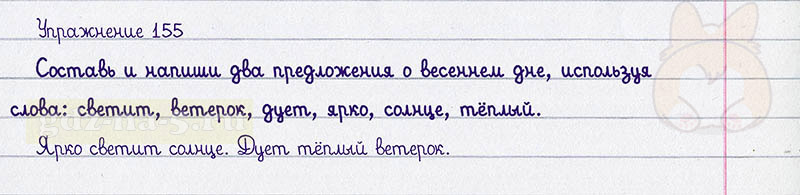 Упражнение 155
Составь и напиши два предложения о весеннем дне, используя
слова: светит, ветерок, дует, ярко, солнце, тёплый.
Ярко светит солнце. Дует тёплый ветерок.